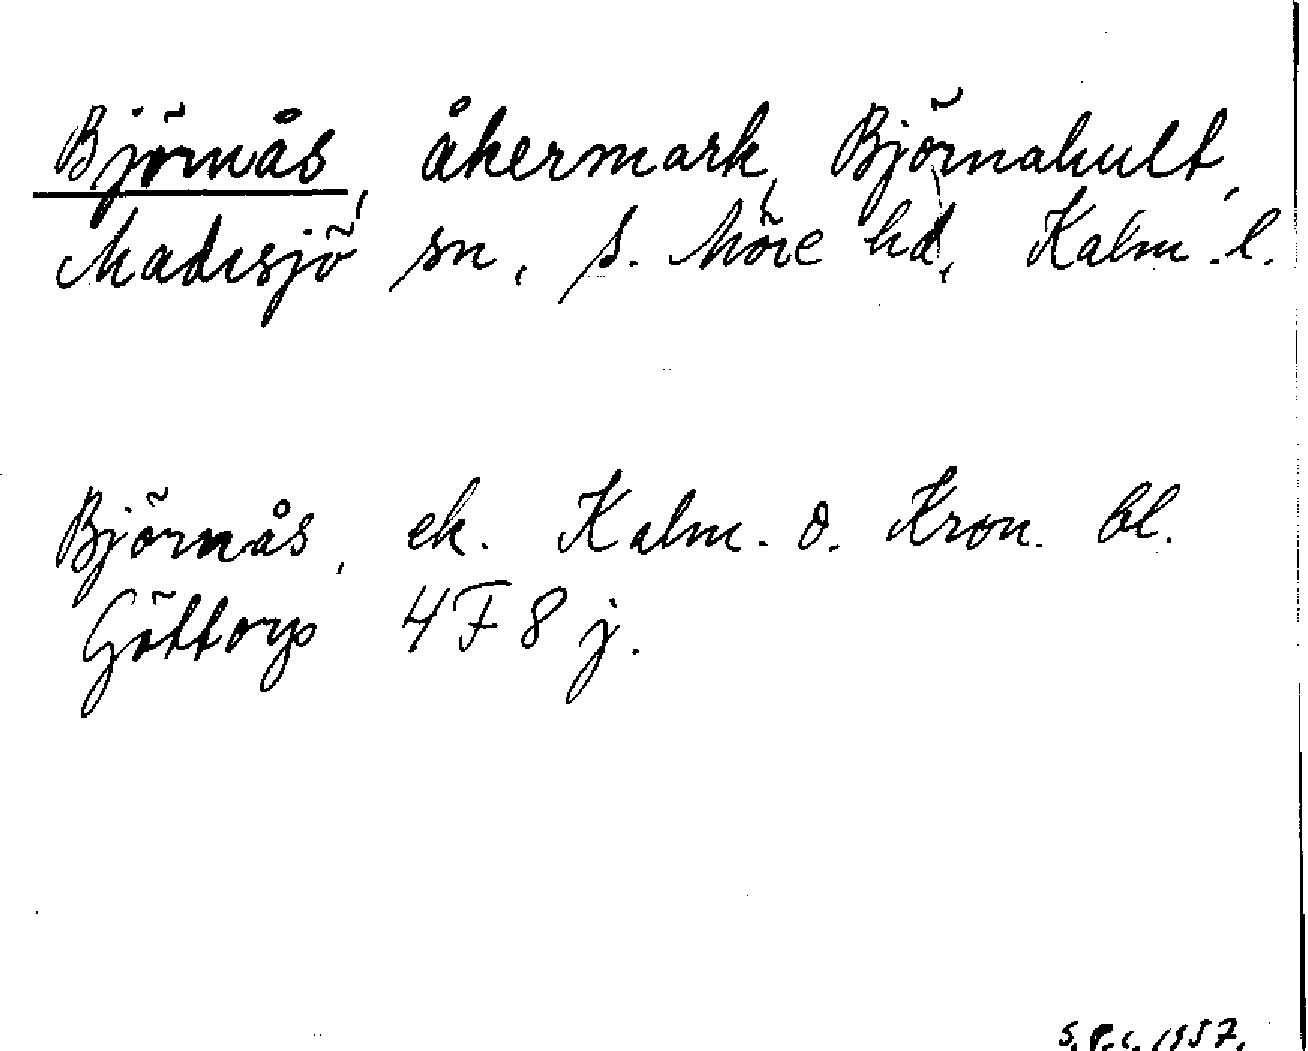 Björnås, åkermark, Björnahult,
Madesjö sn, S. Möre hd, Kalm. l.
Björnås, ek. Kalm. o. Kron. bl.
Göttorp 4F 8 j.
S.P.C. 1957.